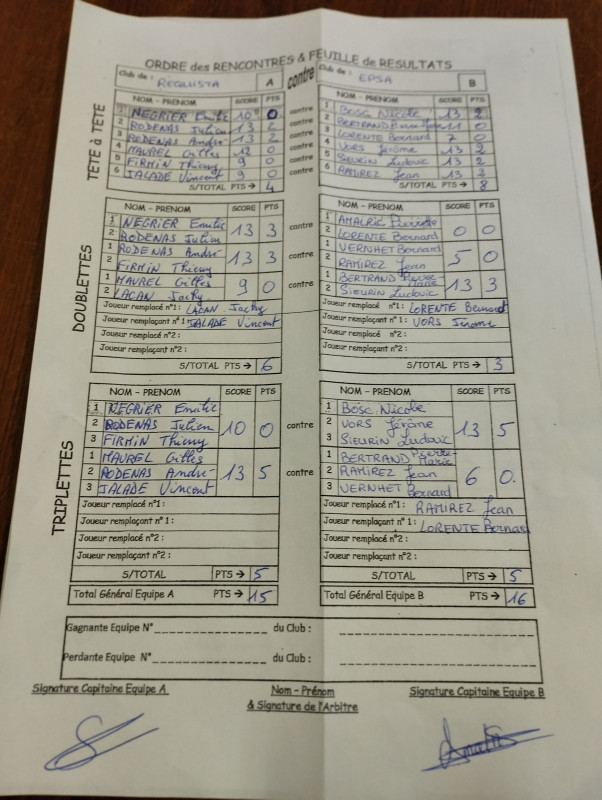 ORDRE des RENCONTRES & FEUILLE de RESULTATS
Club de : REQUISTA A contre Club de : EPSA B
TETE à TETE
NOM - PRENOM SCORE PTS NOM - PRENOM SCORE PTS
1 NEGRIER Emilie 10 0 contre 1 BOSC Nicole 13 2
2 RODENAS Julien 13 2 contre 2 BERTRAND 11 0
3 RODENAS André 13 2 contre 3 LORENTE Bernard 7 0
4 MAUREL Gilles 12 0 contre 4 VORS Jérôme 13 2
5 FIRMIN Thierry 9 0 contre 5 SIEURIN Ludovic 13 2
6 JALADE Vincent 9 0 contre 6 RAMIREZ Jean 13 2
S/TOTAL PTS → 4 S/TOTAL PTS → 8
DOUBLETTES
NOM - PRENOM SCORE PTS NOM - PRENOM SCORE PTS
1 NEGRIER Emilie 13 3 contre 1 AMALRIC Pierrette 0 0
2 RODENAS Julien 2 LORENTE Bernard
1 RODENAS André 13 3 contre 1 VERNHET Bernard 5 0
2 FIRMIN Thierry 2 RAMIREZ Jean
1 MAUREL Gilles 9 0 contre 1 BERTRAND Pierre-Marie 13 3
2 LACAN Jacky 2 SIEURIN Ludovic
Joueur remplacé n°1: LACAN Jacky Joueur remplacé n°1: LORENTE Bernard
Joueur remplaçant n°1: JALADE Vincent Joueur remplaçant n°1: VORS Jerome
Joueur remplacé n°2: Joueur remplacé n°2:
Joueur remplaçant n°2: Joueur remplaçant n°2:
S/TOTAL PTS → 6 S/TOTAL PTS → 3
TRIPLETTES
NOM - PRENOM SCORE PTS NOM - PRENOM SCORE PTS
1 NEGRIER Emilie 10 0 contre 1 BOSC Nicole 13 5
2 RODENAS Julien 2 VORS Jérôme
3 FIRMIN Thierry 3 SIEURIN Ludovic
1 MAUREL Gilles 13 5 contre 1 BERTRAND Pierre-Marie 6 0
2 RODENAS André 2 RAMIREZ Jean
3 JALADE Vincent 3 VERNHET Bernard
Joueur remplacé n°1 : Joueur remplacé n°1 : RAMIREZ Jean
Joueur remplaçant n°1 : Joueur remplaçant n° 1 : LORENTE Bernard
Joueur remplacé n°2 : Joueur remplacé n°2 :
Joueur remplaçant n°2 : Joueur remplaçant n°2 :
S/TOTAL PTS → 5 S/TOTAL PTS → 5
Total Général Equipe A PTS → 15 Total Général Equipe B PTS → 16
Gagnante Equipe N° du Club :
Perdante Equipe N° du Club :
Signature Capitaine Equipe A Nom - Prénom Signature Capitaine Equipe B
& Signature de l'Arbitre